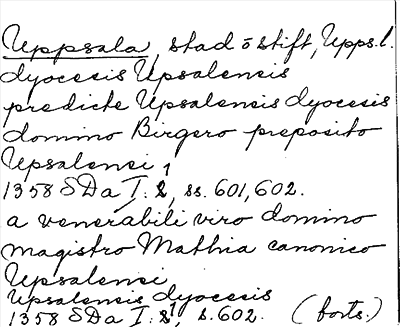 Uppsala, stad o stift, Upps.l.
dyocesis Upsalensis
predicte Upsalensis dyocesis
domino Birgero preposito
Upsalensi
1358 SDa I:1, ss. 601, 602.
a venerabili viro domino
magistro Mathia canonico
Upsalensi
Upsalensis dyocesis
1358 SDa I:1, s. 602. (forts.)